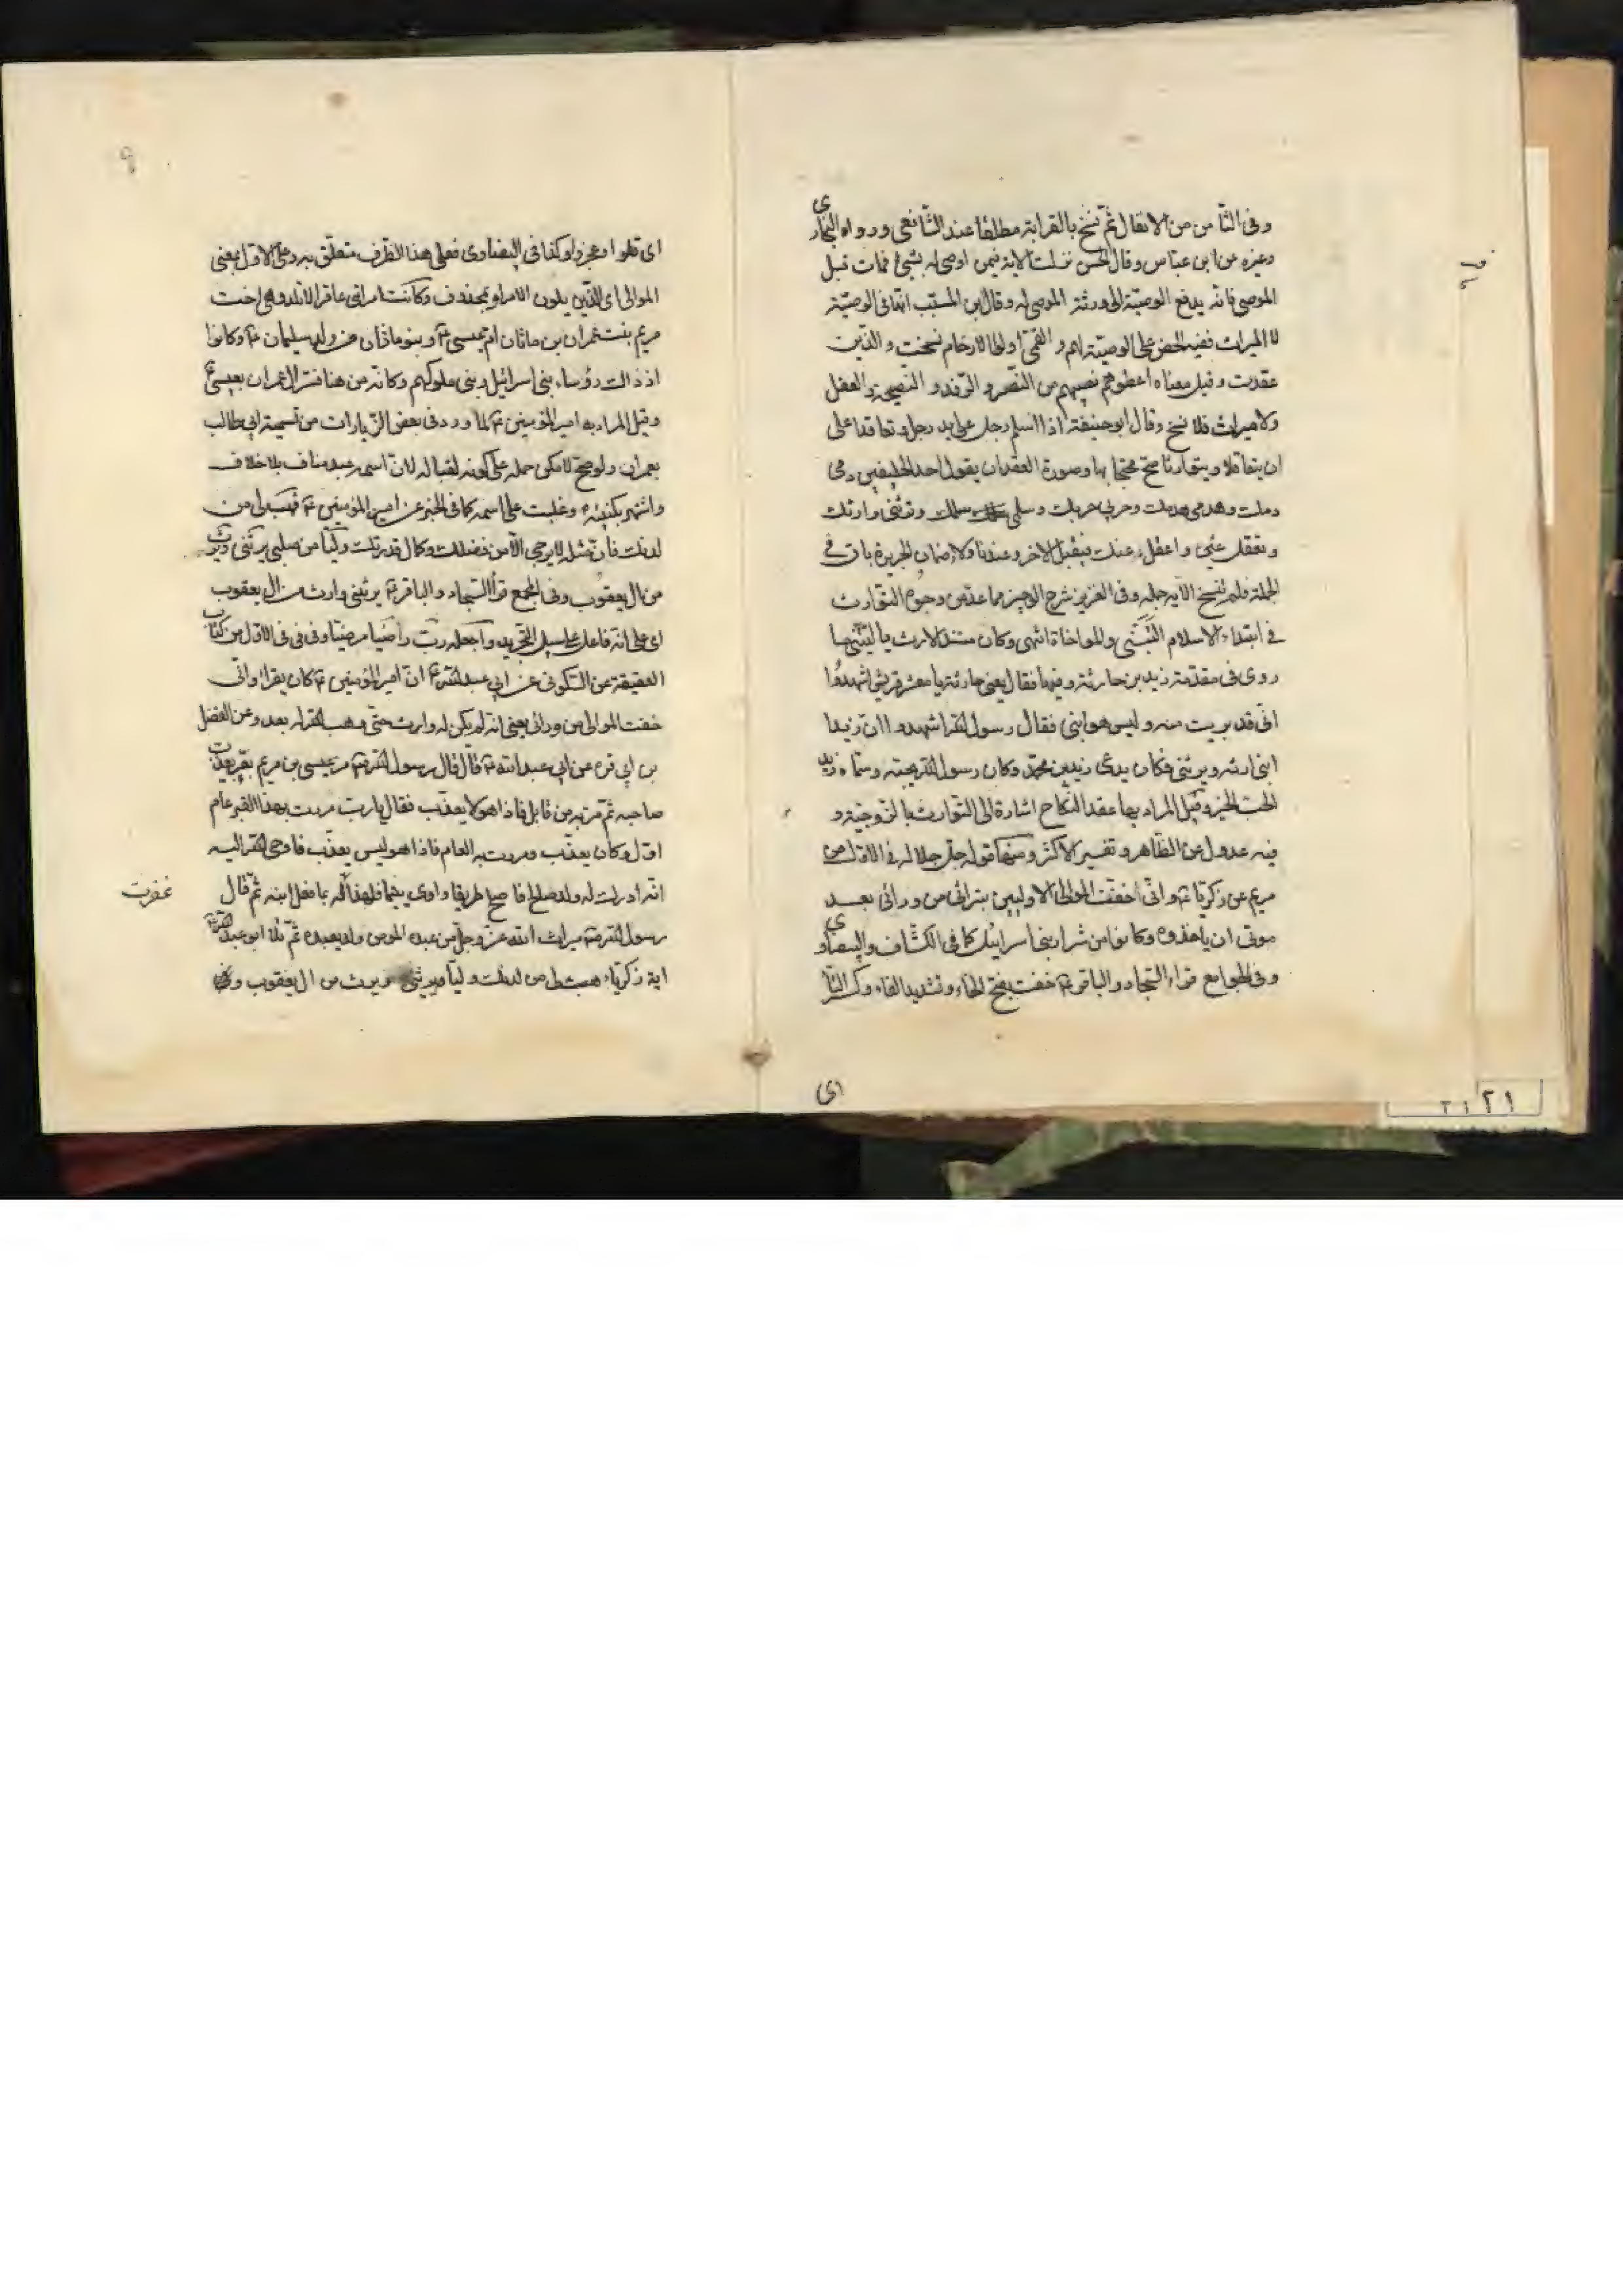 وفى الثامن من الانفال ثم نسخ بالقرابة مطلقا عند الشافعى ورواه البخارى
وغيره عن ابن عباس وقال الحسن نزلت الاية فيمن اوصى له بشئ فمات قبل
الموصى فانه يدفع الوصية الى ورثة الموصى له وقال ابن المسيب انها فى الوصية
لا الميراث ففيه الحض على الوصية لهم و القمى اولوا الارحام نسخت والذين
عقدت وقيل معناه اعطوهم نصيبهم من النصر و الرفد و النصيحة والعقل
ولا ميراث فلا نسخ وقال ابوحنيفة اذا اسلم رجل على يد رجل وتعاقدا على
ان يتعاقلا ويتوارثا صح محتجا بها وصورة العقد ان يقول احد الحليفين دمى
دمك وهدمى هدمك وحربى حربك وسلمى سلمك وترثنى وارثك
وتعقل عنى واعقل عنك فيقبل الاخر وعندنا ولاء ضمان الجريرة باق فى
الجملة فلم تنسخ الاية جملة وفى العزيز شرح الوجيز مما عد من وجوه التوارث
فى ابتداء الاسلام التبنى والمواخاة انتهى وكان مستند الارث بالتبنى ما
روى فى مقدمة زيد بن حارثة وفيها فقال يعنى حارثة يا معشر قريش اشهدوا
انى قد بريت منه وليس هو ابنى فقال رسول الله اشهدوا ان زيدا
ابنى ارثه ويرثنى فكان يدعى زيد بن محمد وكان رسول الله يحبه وسماه زيد
الحب الخبر وقيل المراد بها عقد النكاح اشارة الى التوارث بالزوجية و
فيه عدول عن الظاهر و تفسير الاكثر ومنها قوله جل جلاله فى الاول من
مريم عن زكريا ع وانى خفت الموالى الاولين بتراثى من ورائى بعد
موتى ان ياخذوه وكانوا من شرار بنى اسرائيل كما فى الكشاف والبيضاوى
وفى الجوامع قراء السجاد والباقر ع خفت بفتح الخاء وتشديد الفاء وكسر التاء
اى
اى قلوا وعجزوا وكذا فى البيضاوى فعلى هذا الظرف متعلق به وعلى الاول بمعنى
الموالى اى الذين يلون الامر او بمحذوف وكانت امراتى عاقرا لا تلد وهى اخت
مريم بنت عمران بن ماثان ام عيسى ع وبنو ماثان من ولد سليمان ع وكانوا
اذ ذاك رؤساء بنى اسرائيل وبنى ملوكهم وكانه من هنا فسر ال عمران بعيسى ع
وقيل المراد به امير المؤمنين ع لما ورد فى بعض الزيارات من تسمية ابى طالب
بعمران ولو صح لامكن حمله على كونه لقبا له لان اسمه عبد مناف بلا خلاف
واشتهر بكنيته وغلبت على اسمه كما فى الخبر عن امير المؤمنين ع فهب لى من
لدنك فان مثله لا يرجى الا من فضلك وكمال قدرتك وليا من صلبى يرثنى ويرث
من ال يعقوب وفى المجمع قرأ السجاد والباقر ع يرثنى وارث من ال يعقوب
اى على انه فاعل على سبيل التجريد واجعله رب راضيا مرضيا وفى فى الاول من كتاب
العقيقة عن السكونى عن ابى عبد الله ع ان امير المؤمنين ع كان يقرا وانى
خفت الموالى من ورائى يعنى انه لم يكن له وارث حتى وهب الله له بعد وعن الفضل
بن ابى قره عن ابى عبد الله ع قال قال رسول الله مر عيسى بن مريم بقبر يعذب
صاحبه ثم مر به من قابل فاذا هو لا يعذب فقال يا رب مررت بهذا القبر عام
اول وكان يعذب ومررت به العام فاذا هو ليس يعذب فاوحى الله اليه
انه ادرك له ولد صالح فاصلح طريقا واوى يتيما فلهذا له بما فعل ابنه ثم قال
غفرت
رسول الله ميراث الله عز وجل من عبده المومن ولد يعبده ثم تلا ابو عبد الله ع
اية زكريا هب لى من لدنك وليا يرثنى ويرث من ال يعقوب